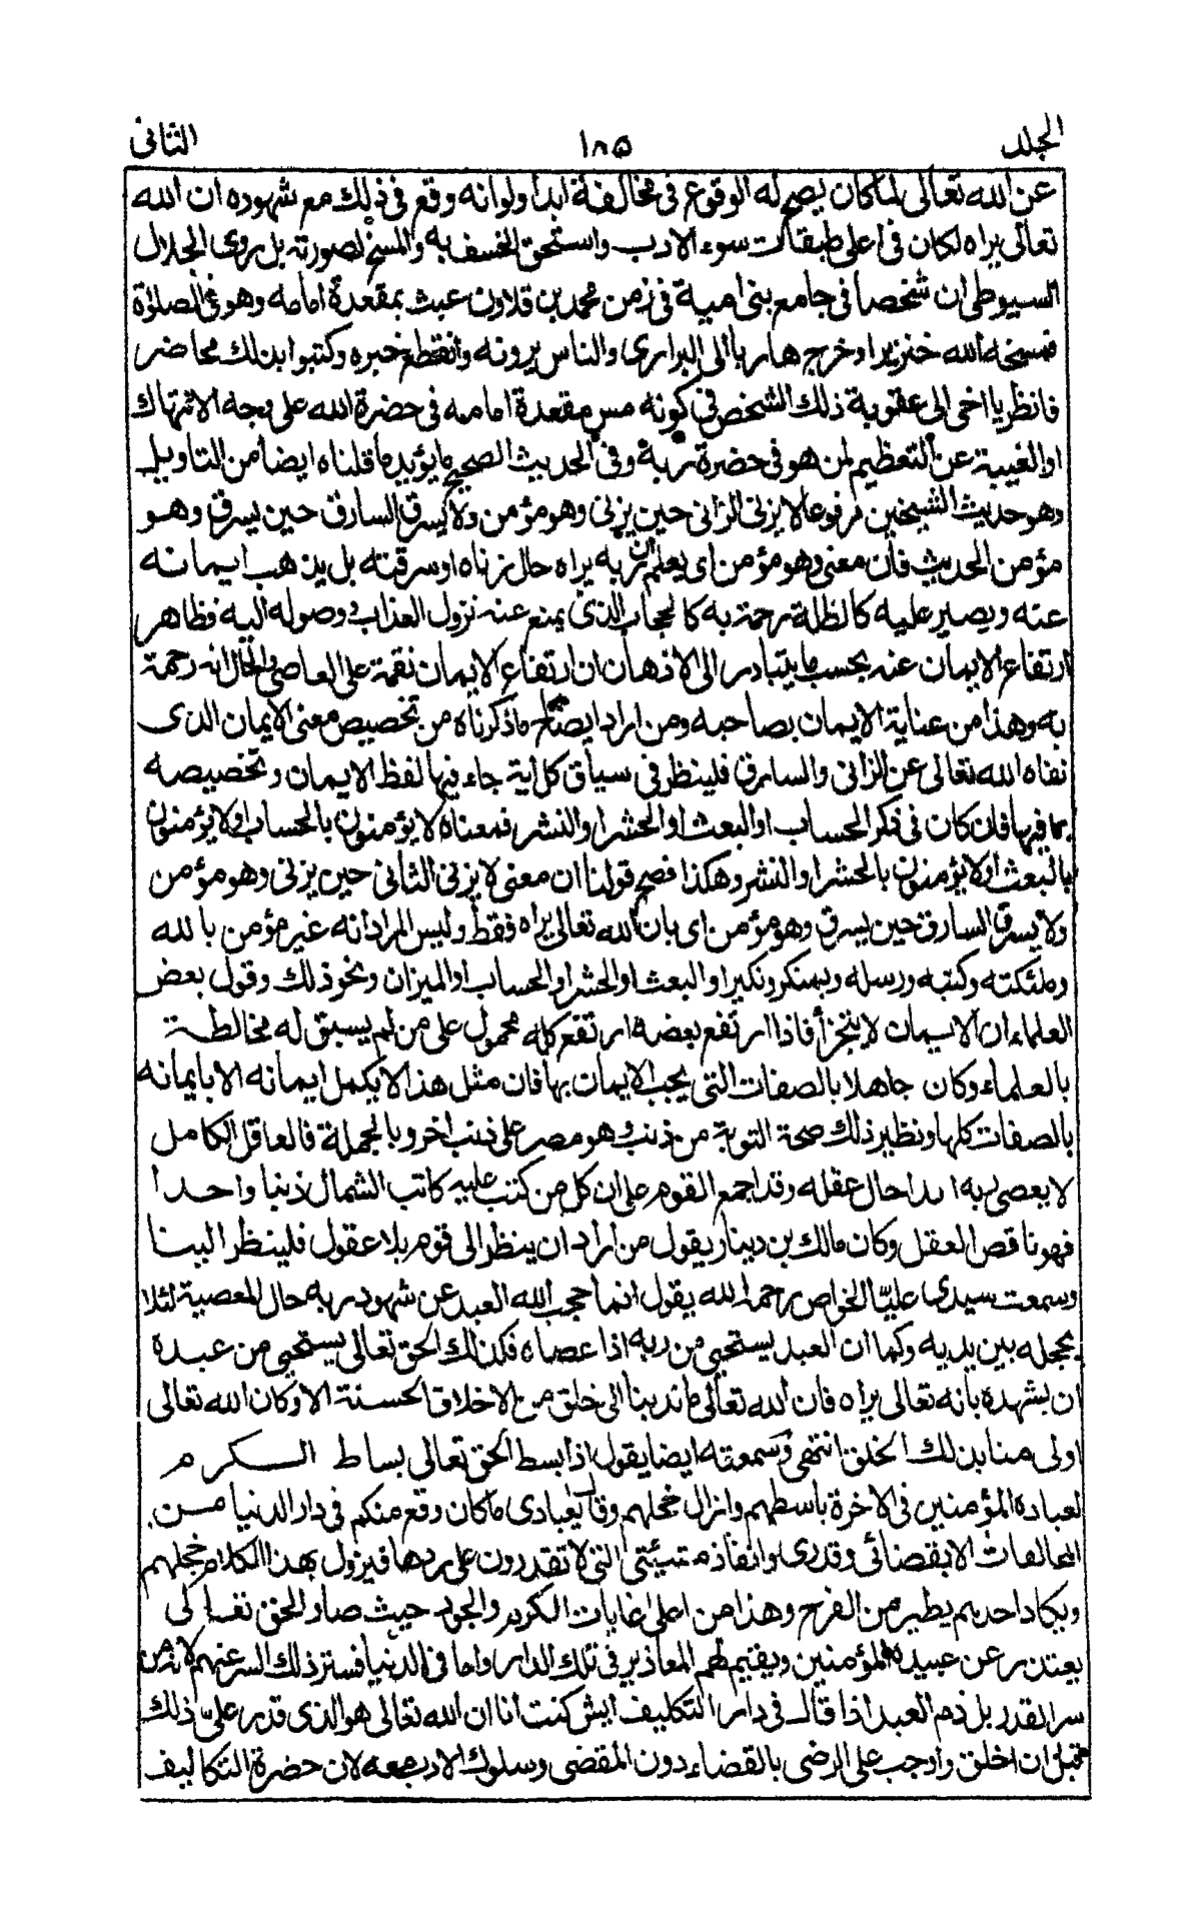 الجلد ١٨٥ الثانى
عن الله تعالى لما كان يصح له الوقوع فى مخالفة ابدا ولو انه وقع فى ذلك مع شهوده ان الله
تعالى يراه لكان فى اعلى طبقات سوء الادب واستحق الخسف به والمسخ لصورته بل روى الجلال
السيوطى ان شخصا فى جامع بنى امية فى زمن محمد بن قلاون عبث بمقعدة امامه وهو فى الصلوة
فمسخه الله خنزيرا وخرج هاربا الى البرارى والناس يرونه وانقطع خبره وكتبوا بذلك محاضر
فانظر يا اخى الى عقوبة ذلك الشخص فى كونه مس مقعدة امامه فى حضرة الله على وجه الانتهاك
او الغيبة عن التعظيم لمن هو فى حضرة ربه وفى الحديث الصحيح ما يؤيد ما قلناه ايضا من التاويل
وهو حديث الشيخين مرفوعا لا يزنى الزانى حين يزنى وهو مؤمن ولا يسرق السارق حين يسرق وهو
مؤمن الحديث فان معنى وهو مؤمن اى يعلم ان ربه يراه حال زناه او سرقته بل يذهب ايمانه
عنه ويصير عليه كالظلة رحمة به كالحجاب الذى يمنع عنه نزول العذاب ووصوله اليه فظاهر
ارتفاع الايمان عنه بحسب ما يتبادر الى الاذهان ان ارتفاع الايمان نقمة على العاصى والحال انه رحمة
به وهذا من عناية الايمان بصاحبه ومن اراد ايضاح ماذكرناه من تخصيص معنى الايمان الذى
نفاه الله تعالى عن الزانى والسارق فلينظر فى سياق كل اية جاء فيها لفظ الايمان وتخصيصه
بما فيها فان كان فى ذكر الحساب او البعث او الحشر او النشر فمعناه لا يؤمنون بالحساب ولا يؤمنون
بالبعث او لا يؤمنون بالحشر او النشر وهكذا فصح قولنا ان معنى لا يزنى الثانى حين يزنى وهو مؤمن
ولا يسرق السارق حين يسرق وهو مؤمن اى بان الله تعالى يراه فقط وليس المراد انه غير مؤمن بالله
وملئكته وكتبه ورسله وبمنكر ونكير او البعث او الحشر او الحساب او الميزان ونحو ذلك وقول بعض
العلماء ان الايمان لا يتجزأ فاذا ارتفع بعضه ارتفع كله محمول على من لم يسبق له مخالطة
بالعلماء وكان جاهلا بالصفات التى يجب الايمان بها فان مثل هذا لا يكمل ايمانه الا بايمانه
بالصفات كلها ونظير ذلك صحة التوبة من ذنب هو مصر على ذنب اخر وبالجملة فالعاقل الكامل
لا يعصى ربه ابدا حال عقله وقد اجمع القوم على ان كل من كتب عليه كاتب الشمال ذنبا واحدا
فهو ناقص العقل وكان مالك بن دينار يقول من اراد ان ينظر الى قوم بلا عقول فلينظر الينا
وسمعت سيدى عليّا الخواص رحمه الله يقول انما حجب الله العبد عن شهود ربه حال المعصية لئلا
يخجله بين يديه وكما ان العبد يستحيى من ربه اذا عصاه فكذلك الحق تعالى يستحيى من عبده
ان يشهده بانه تعالى يراه فان الله تعالى ما ندبنا الى خلق من الاخلاق الحسنة الا وكان الله تعالى
اولى منا بذلك الخلق انتهى وسمعته ايضا يقول اذا بسط الحق تعالى بساط الكرم
لعباده المؤمنين فى الاخرة باسطهم وازال خجلهم وقال يعبادى ما كان وقع منكم فى دار الدنيا من
المخالفات الا بقضائى وقدرى وانفاذ مشيئتى التى لا تقدرون على ردها فيزول بهذا الكلام خجلهم
ويكاد احدهم يطير من الفرح وهذا من اعلى غايات الكرم والجود حيث صار الحق تعالى
يعتذر عن عبيده المؤمنين ويقيم لهم المعاذير فى تلك الدار واما فى الدنيا فستر ذلك السر عنهم لانه من
سر القدر بل ذم العبد اذا قال فى دار التكليف ايش كنت انا ان الله تعالى هو الذى قدر علىّ ذلك
قبل ان اخلق واوجب على الرضى بالقضاء دون المقضى وسلوك الادب معه لان حضرة التكاليف